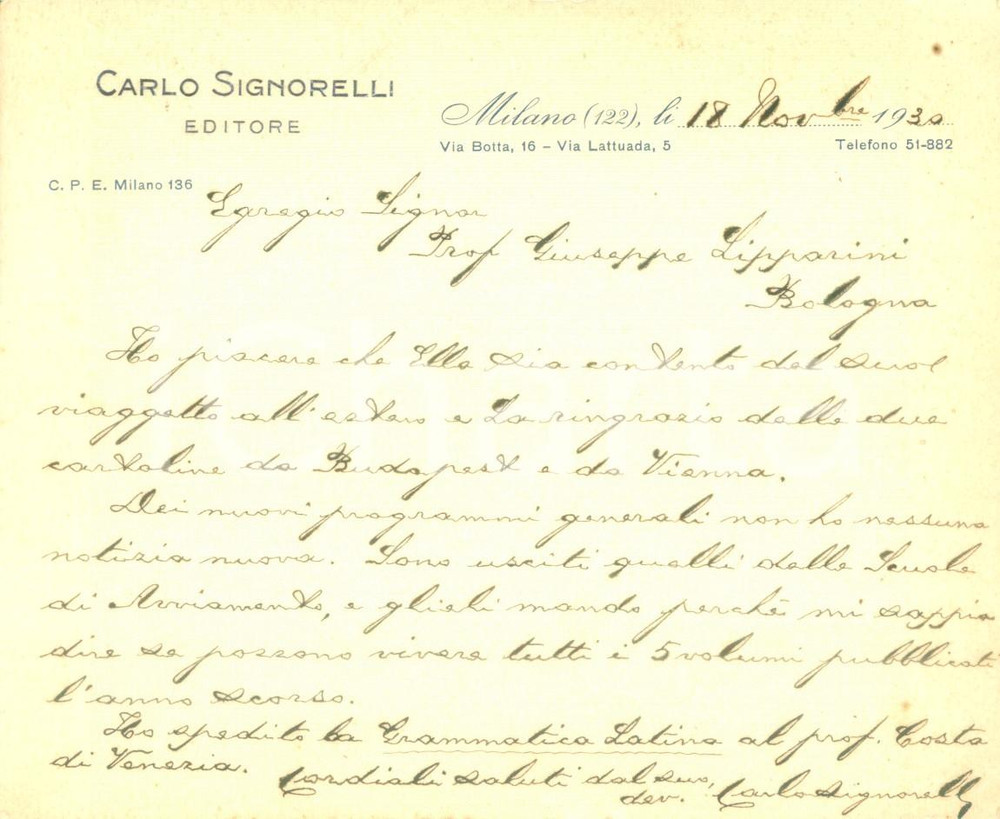 CARLO SIGNORELLI
EDITORE
Milano (122), li 18 Novbre 1930
Via Botta, 16 – Via Lattuada, 5 Telefono 51-882
C. P. E. Milano 136
Egregio Signor
Prof Giuseppe Lipparini
Bologna
Ho piacere che Ella sia contento del suo
viaggetto all'estero e La ringrazio delle due
cartoline da Budapest e da Vienna.
Dei nuovi programmi generali non ho nessuna
notizia nuova. Sono usciti quelli delle Scuole
di Avviamento, e glieli mando perchè mi sappia
dire se possono vivere tutti i 5 volumi pubblicati
l'anno scorso.
Ho spedito la Grammatica Latina al prof. Costa
di Venezia.
Cordiali saluti dal suo,
dev. Carlo Signorelli